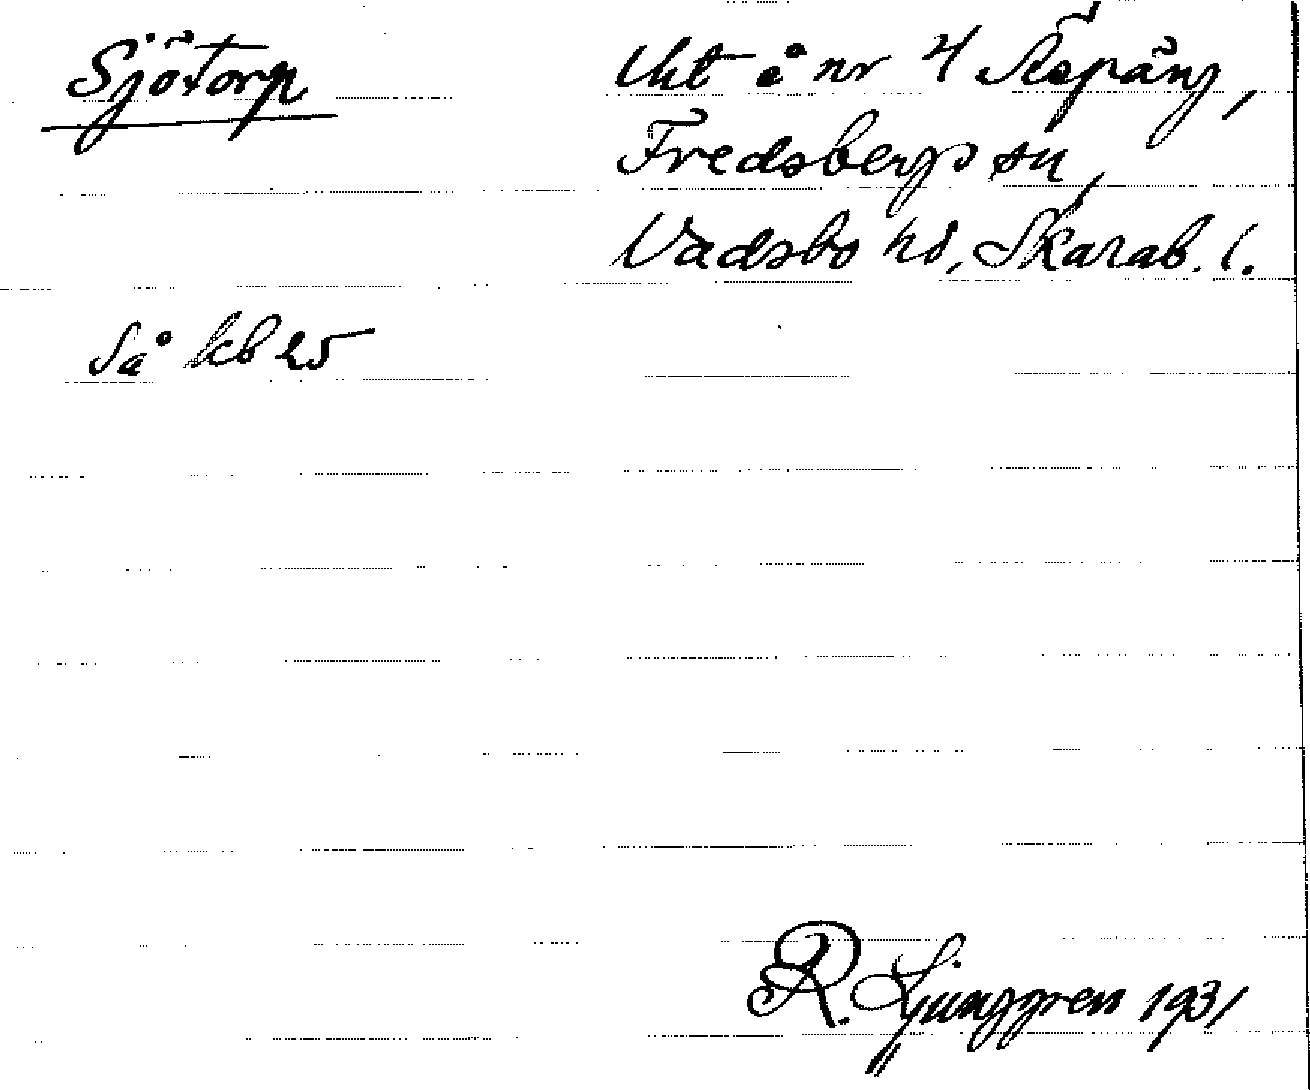 Sjötorp
Uht å nr 4 Äspäng,
Fredsbergs sn,
Vadsbo hd, Skarab. l.
Så kb
R. Ljunggren 1931